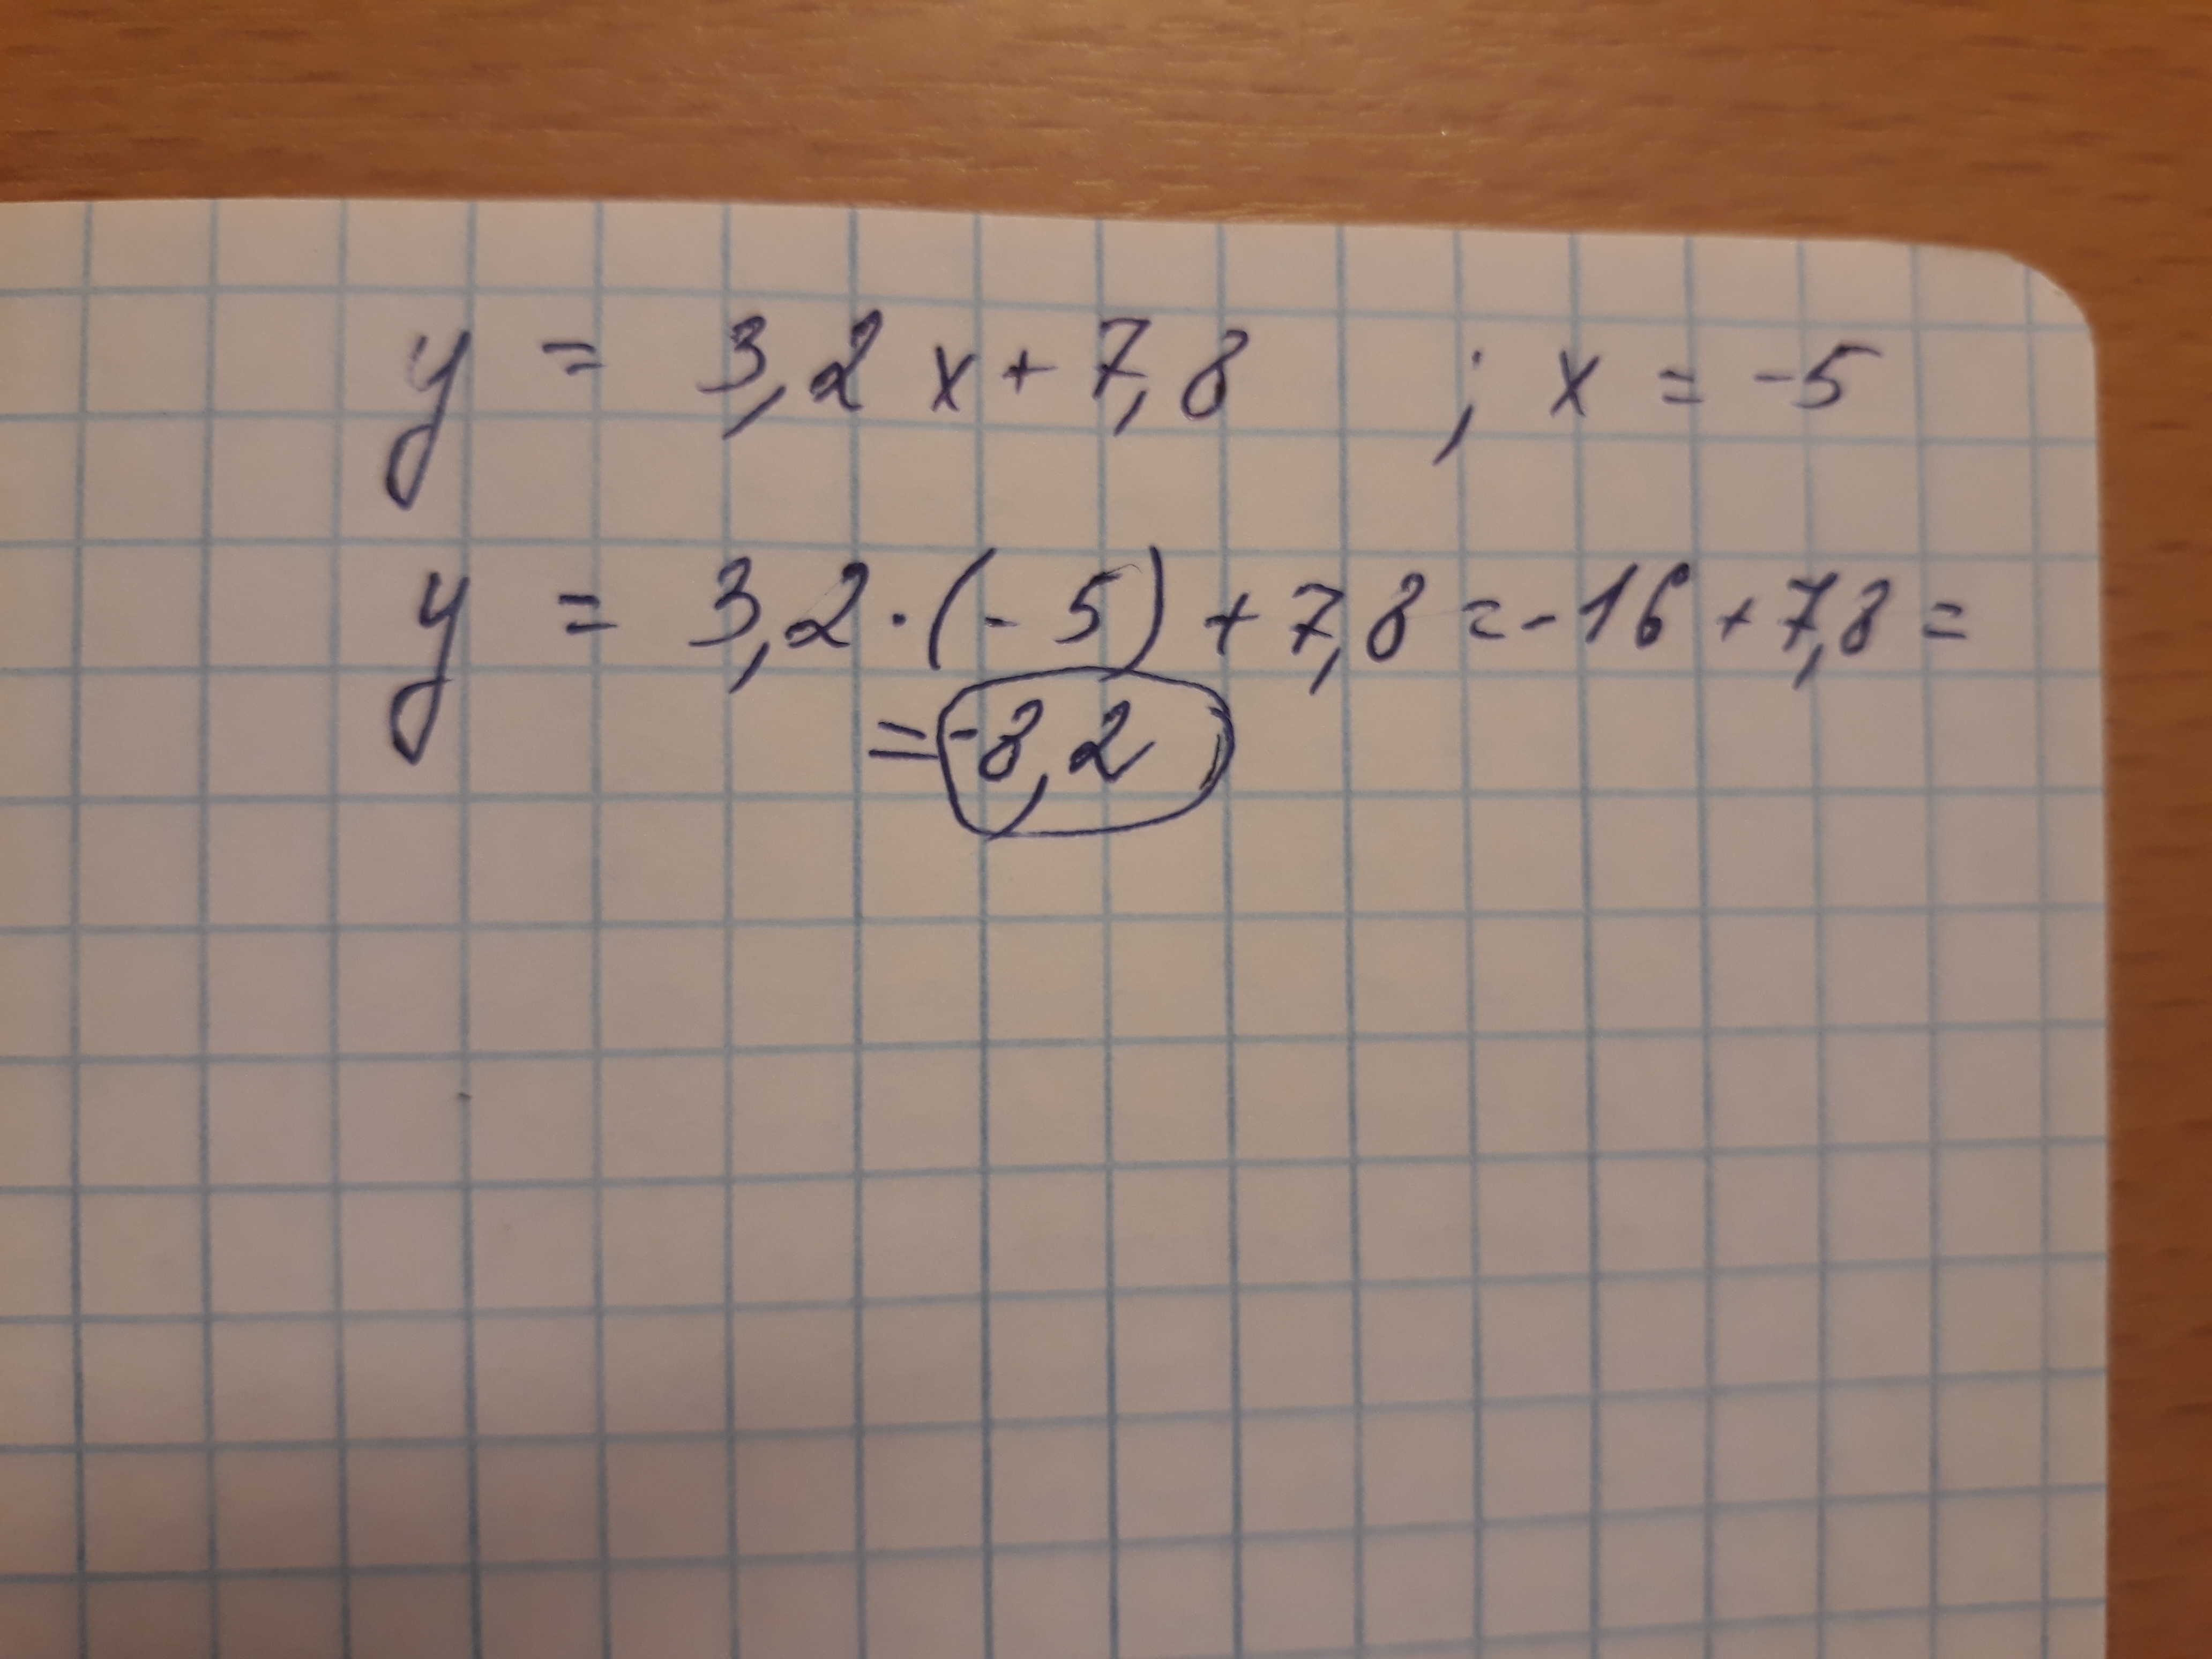 y = 3,2x+7,8 ; x = -5
y = 3,2·(-5)+7,8=-16+7,8=
=-8,2